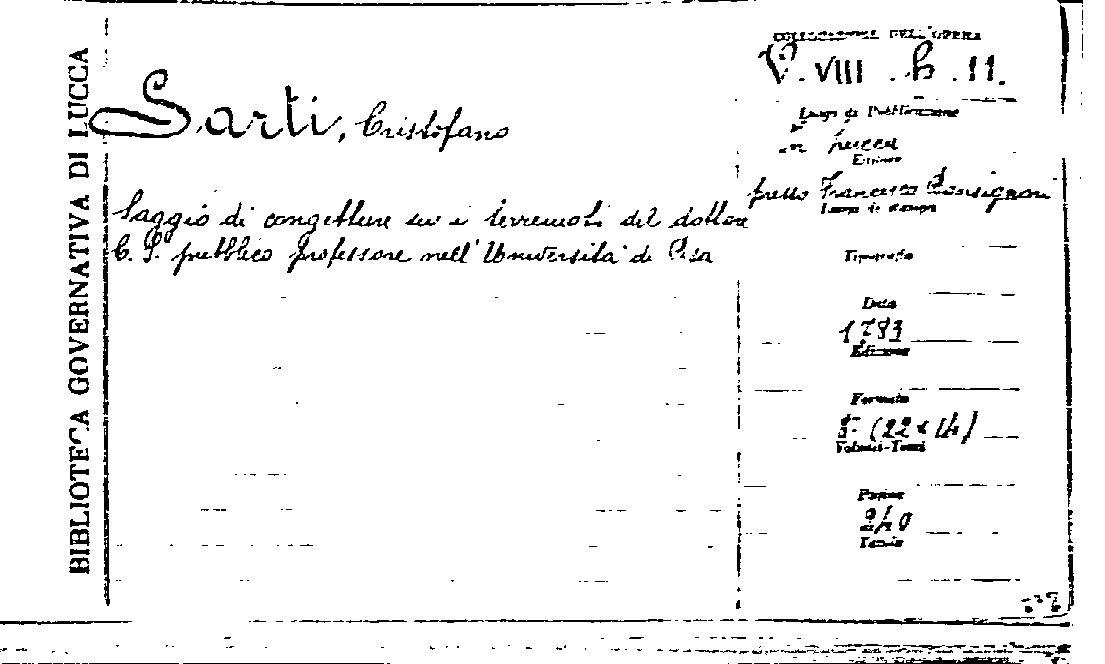 BIBLIOTECA GOVERNATIVA DI LUCCA
Sarti, Cristofano
Saggio di congetture su i terremoti del dottore
C. S. pubblico professore nell' Università di Pisa
COLLOCAZIONE DELL'OPERA
V. VIII . b . 11.
Luogo di Pubblicazione
in Lucca
Editore
presso Francesco Bonsignori
Luogo di stampa
Tipografo
Data
1783
Edizione
Formato
(22 x 14)
Volumi-Tomi
Pagine
Tavole